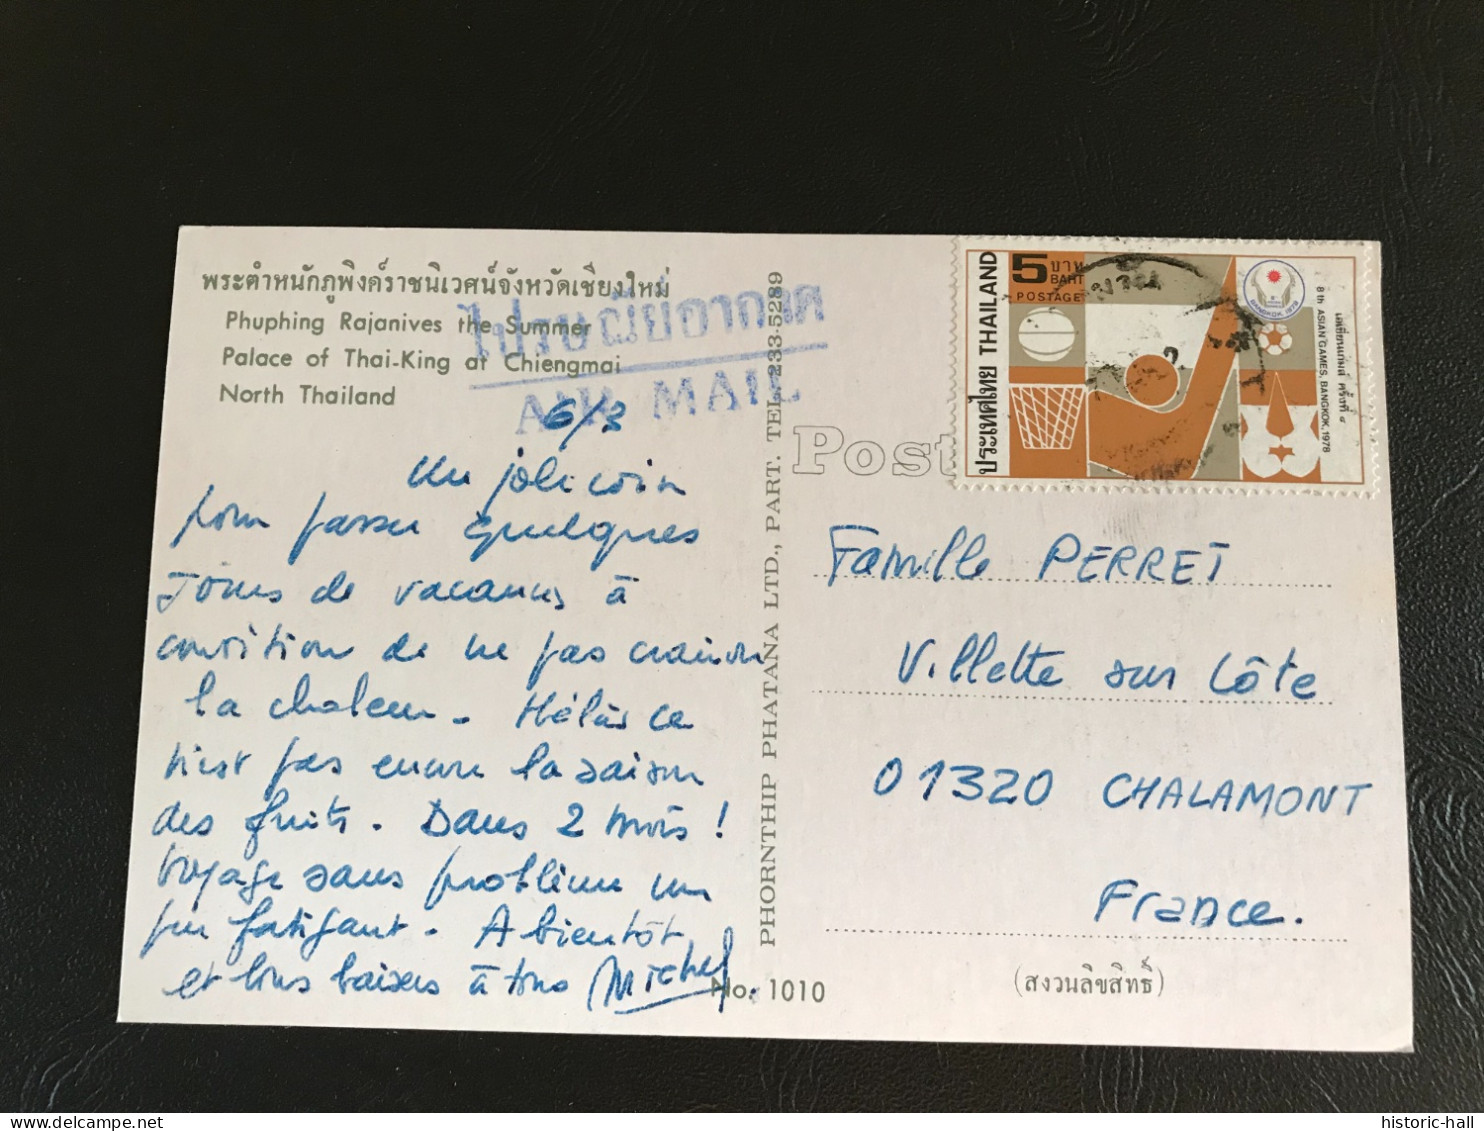 พระตำหนักภูพิงค์ราชนิเวศน์จังหวัดเชียงใหม่
Phuphing Rajanives the Summer
Palace of Thai-King at Chiengmai
North Thailand
ไปรษณีย์อากาศ
AIR MAIL
6/3
Un joli coin
pour passer quelques
jours de vacances à
condition de ne pas craindre
la chaleur. Hélas ce
n'est pas encore la saison
des fruits. Dans 2 mois !
Voyage sans problème un
peu fatigant. A bientôt
et bons baisers à tous Michel
No. 1010
PHORNTHIP PHATANA LTD., PART. TEL. 233-5289
Post
ประเทศไทย THAILAND
5 บาท
BAHT
POSTAGE
BANGKOK 1978
8 th ASIAN GAMES, BANGKOK, 1978
เอเชียนเกมส์ ครั้งที่ ๘
Famille PERRET
Villette sur Côte
01320 CHALAMONT
France.
(สงวนลิขสิทธิ์)
historic-hall